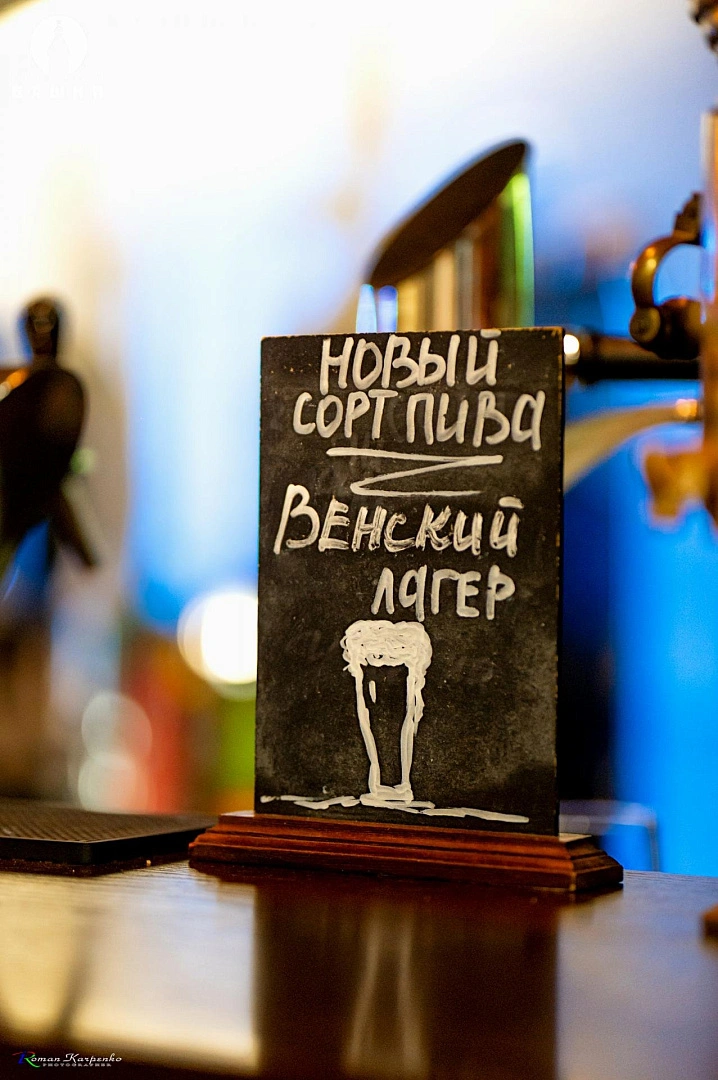 НОВЫЙ
СОРТ ПИВА
ВЕНСКИЙ
ЛАГЕР
Roman Karpenko
PHOTOGRAPHER